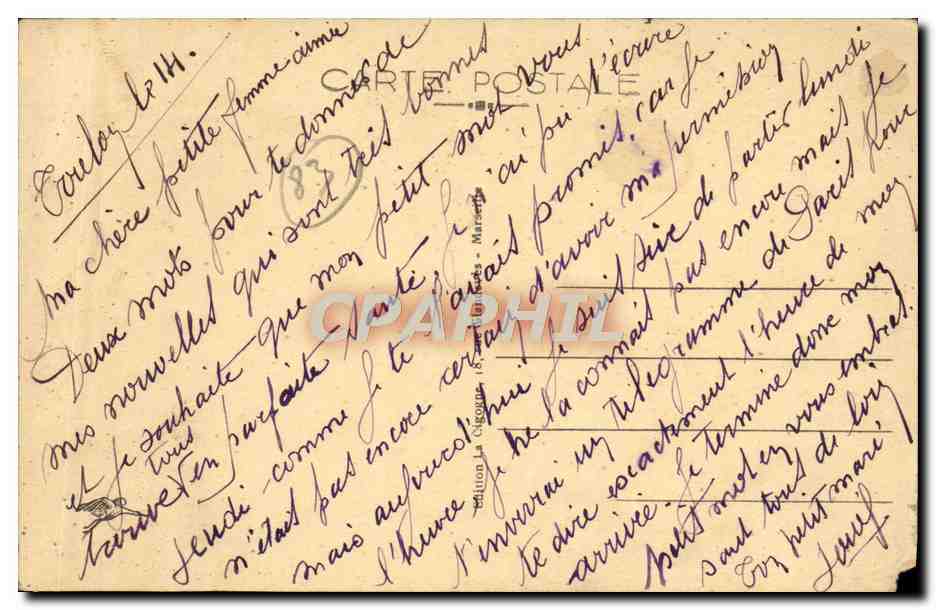 CARTE POSTALE
Toulon le 14.
83
Ma chère petite femme aimée
Deux mots pour te donner de
mes nouvelles qui sont très bonnes
et je souhaite que mon petit mot vous
trouve tous en parfaite santé. Je n'ai pu t'écrire
jeudi comme je te l'avais promis, car je
n'étais pas encore certain d'avoir ma permission
mais aujourd'hui je suis sûr de partir lundi
l'heure je ne la connais pas encore mais je
t'enverrai un télégramme de Paris pour
te dire exactement l'heure de mon
arrivée. Je termine donc mon
petit mot en vous embras
sant tous de loin
Ton petit mari,
Edition La Cigogne, 18, - Marseille
CPAPHIL